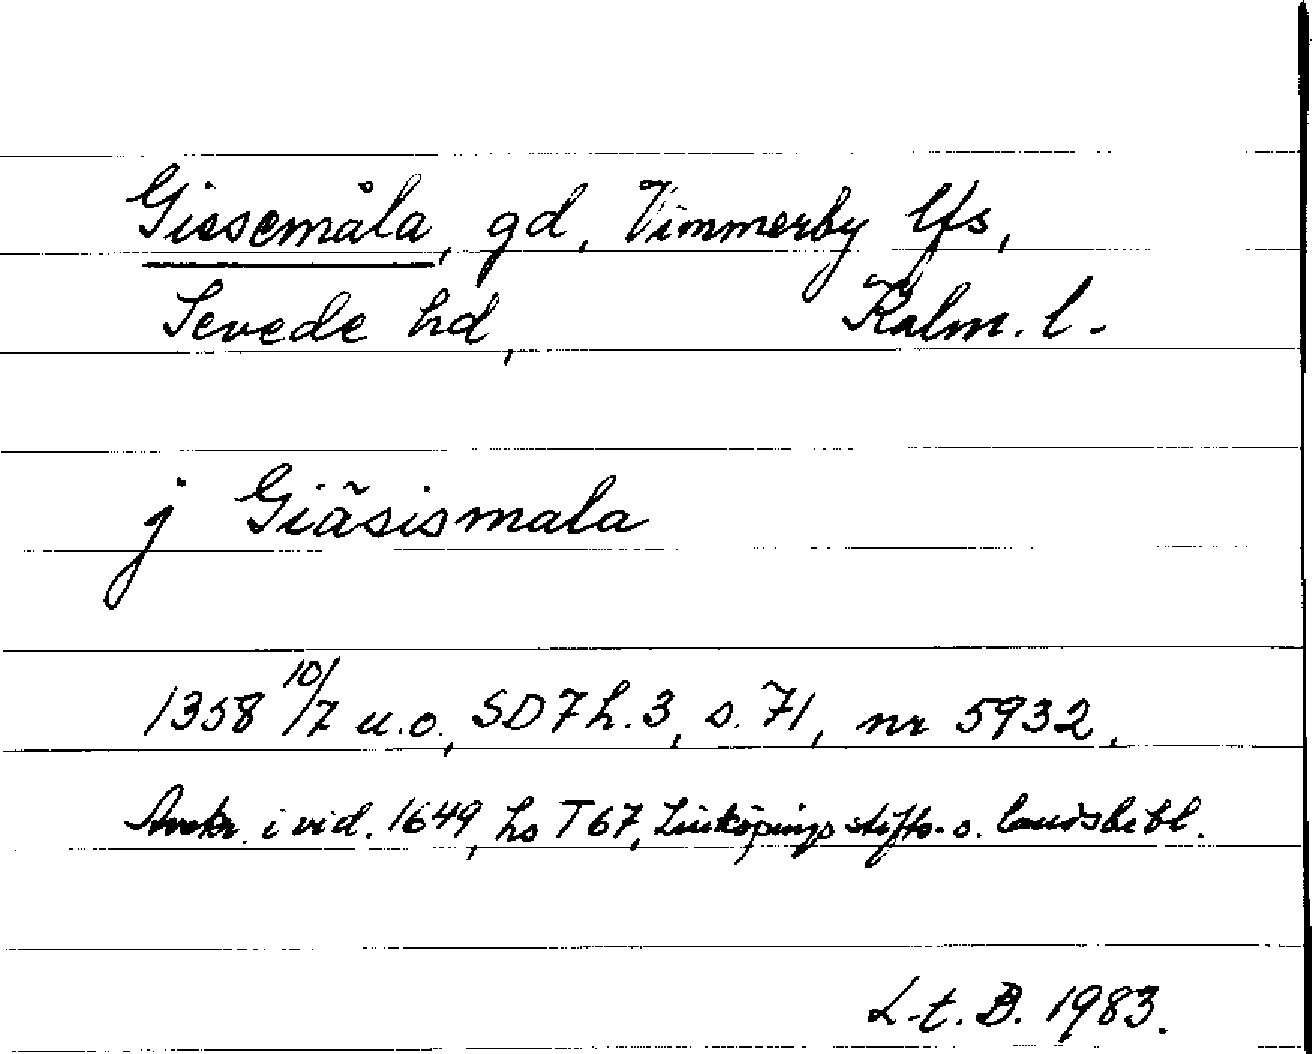 Gissemåla, gd, Vimmerby lfs,
Sevede hd, Kalm. l.
j Giäsismala
1358 10/7 u.o., SD7 h.3, s. 71, nr 5932.
Avskr. i vid. 1649, hs T67, Linköpings stifts- o. landsbibl.
L-t. B. 1983.